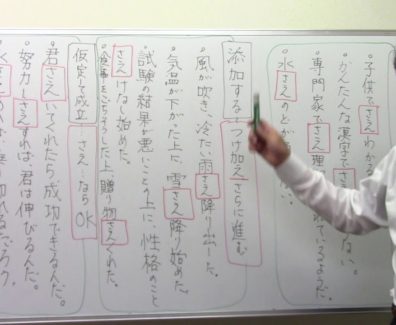 子供でさえわかる
かんたんな漢字でさえ ない。
専門家でさえ理 れているようだ。
水さえのどが
添加する つけ加え さらに進む
風が吹き、冷たい雨さえ降り出した。
気温が下がった上に、雪さえ降り始めた。
試験の結果が悪いことの上に、性格のこと
さえけなし始めた。
食事をごちそうした上、贈り物さえくれた。
仮定して成立 …さえ…なら OK
君さえいてくれたら成功できるんだ。
努力しさえすれば君は伸びるんだ。